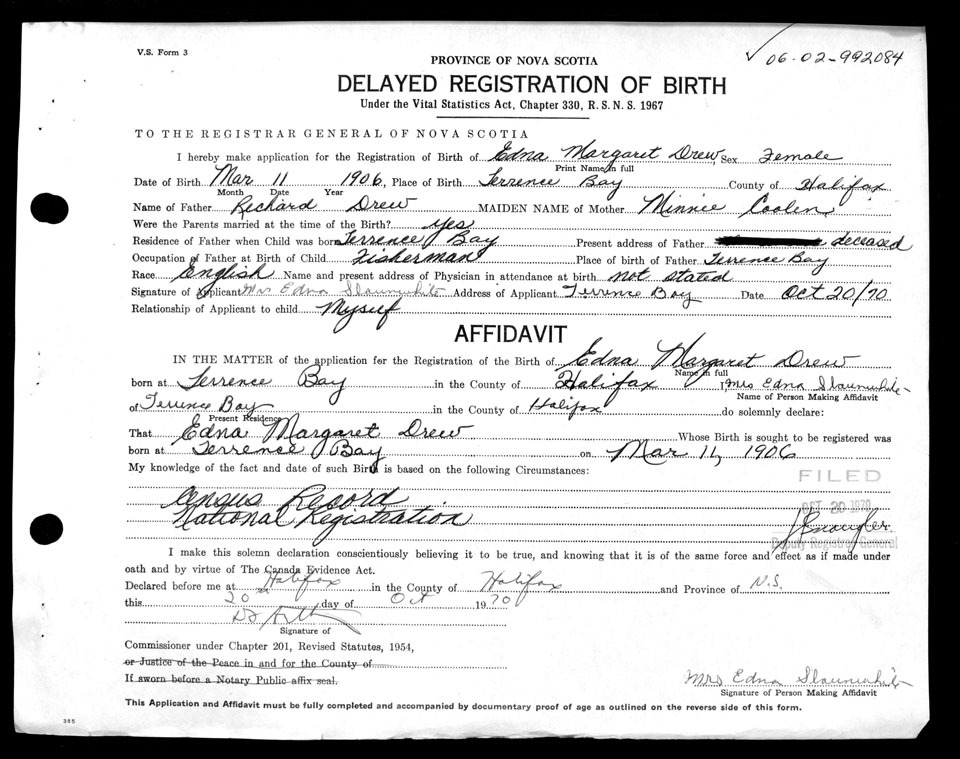 V.S. Form 3
06-02-992084
PROVINCE OF NOVA SCOTIA
DELAYED REGISTRATION OF BIRTH
Under the Vital Statistics Act, Chapter 330, R.S.N.S. 1967
TO THE REGISTRAR GENERAL OF NOVA SCOTIA
I hereby make application for the Registration of Birth of Edna Margaret Drew Sex Female
Print Name in full
Date of Birth Mar 11 1906, Place of Birth Terrence Bay County of Halifax
Month Date Year
Name of Father Richard Drew MAIDEN NAME of Mother Minnie Coolen
Were the Parents married at the time of the Birth? yes
Residence of Father when Child was born Terrence Bay Present address of Father deceased
Occupation of Father at Birth of Child Fisherman Place of birth of Father Terrence Bay
Race English Name and present address of Physician in attendance at birth not stated
Signature of Applicant Mrs Edna Slaunwhite Address of Applicant Terrence Bay Date Oct 20/70
Relationship of Applicant to child Myself
AFFIDAVIT
IN THE MATTER of the application for the Registration of the Birth of Edna Margaret Drew
Name in full
born at Terrence Bay in the County of Halifax I, Mrs Edna Slaunwhite
Name of Person Making Affidavit
of Terrence Bay in the County of Halifax do solemnly declare:
Present Residence
That Edna Margaret Drew Whose Birth is sought to be registered was
born at Terrence Bay on Mar 11, 1906
My knowledge of the fact and date of such Birth is based on the following Circumstances:
FILED
Census Record
OCT 20 1970
National Registration
Deputy Registrar General
I make this solemn declaration conscientiously believing it to be true, and knowing that it is of the same force and effect as if made under
oath and by virtue of The Canada Evidence Act.
Declared before me at Halifax in the County of Halifax and Province of N.S.
this 20 day of Oct 1970
Signature of
Commissioner under Chapter 201, Revised Statutes, 1954,
or Justice of the Peace in and for the County of
If sworn before a Notary Public affix seal.
Mrs Edna Slaunwhite
Signature of Person Making Affidavit
This Application and Affidavit must be fully completed and accompanied by documentary proof of age as outlined on the reverse side of this form.
385